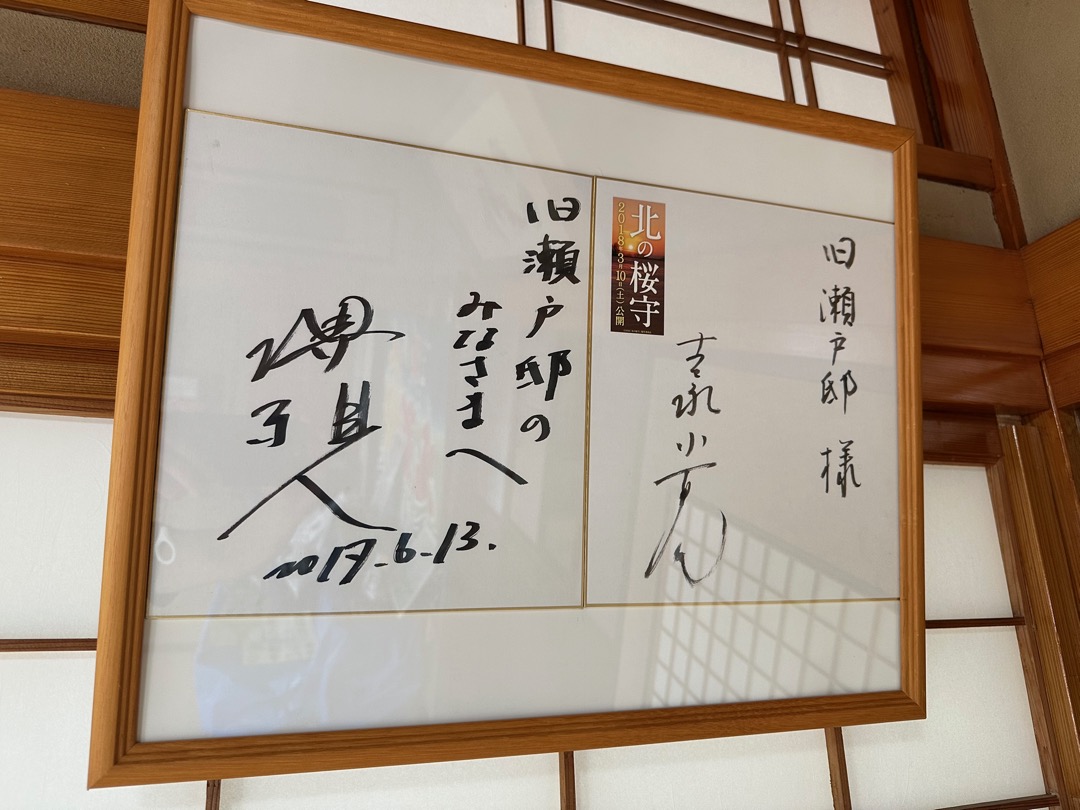 旧瀬戸邸 様
北の桜守
2018年3月10日(土)公開
吉永小百合
旧瀬戸邸の
みなさまへ
堺雅人
2017.6.13.